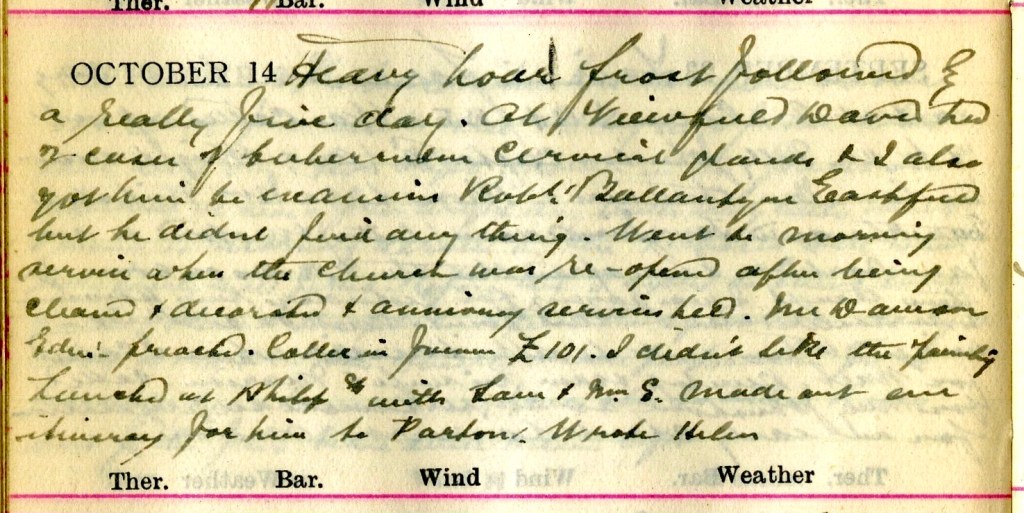 Ther. Bar. Wind Weather
OCTOBER 14 Heavy hoar frost followed by
a really fine day. At Viewfield David had
2 cases of tubercular cervical glands & I also
got him to examine Robt. Ballantyne Eastfield
but he didnt find anything. Went to morning
service when the Church was re-opened after being
cleaned & decorated & anniversary services held. Mr Dawson
Edin: preached. Collection £101. I didn't like the painting
Lunched at Philip St with Sam & Mrs E. made out an
itinerary for him to Parton. Wrote Helen
Ther. Bar. Wind Weather